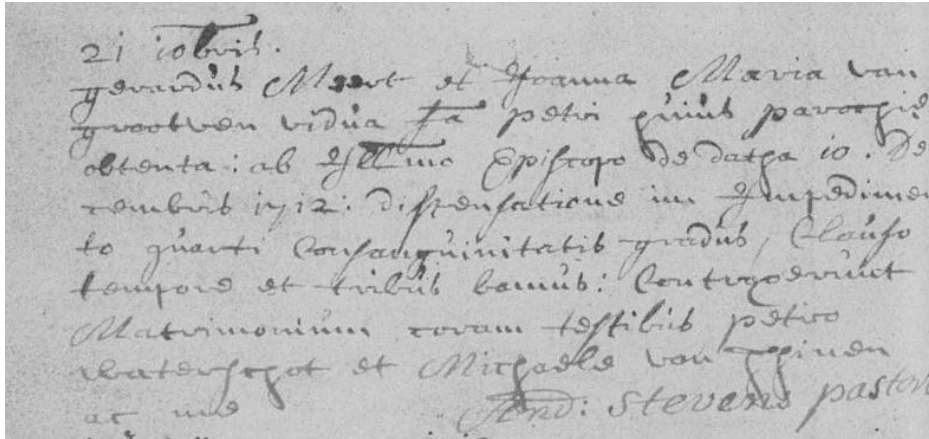 21 10bris.
gerardus Meert et Joanna Maria van
grootven vidua fa petri huius parochię
obtenta: ab Illmo Episcopo de datha 10. De
cembris 1712: dispensatione im Impedimen
to quarti Consanguinitatis gradus, Clauso
tempore et tribus bannis: Contraxerunt
Matrimonium coram testibus petro
waterschot et Michaele van
ac me And: Stevens pastor